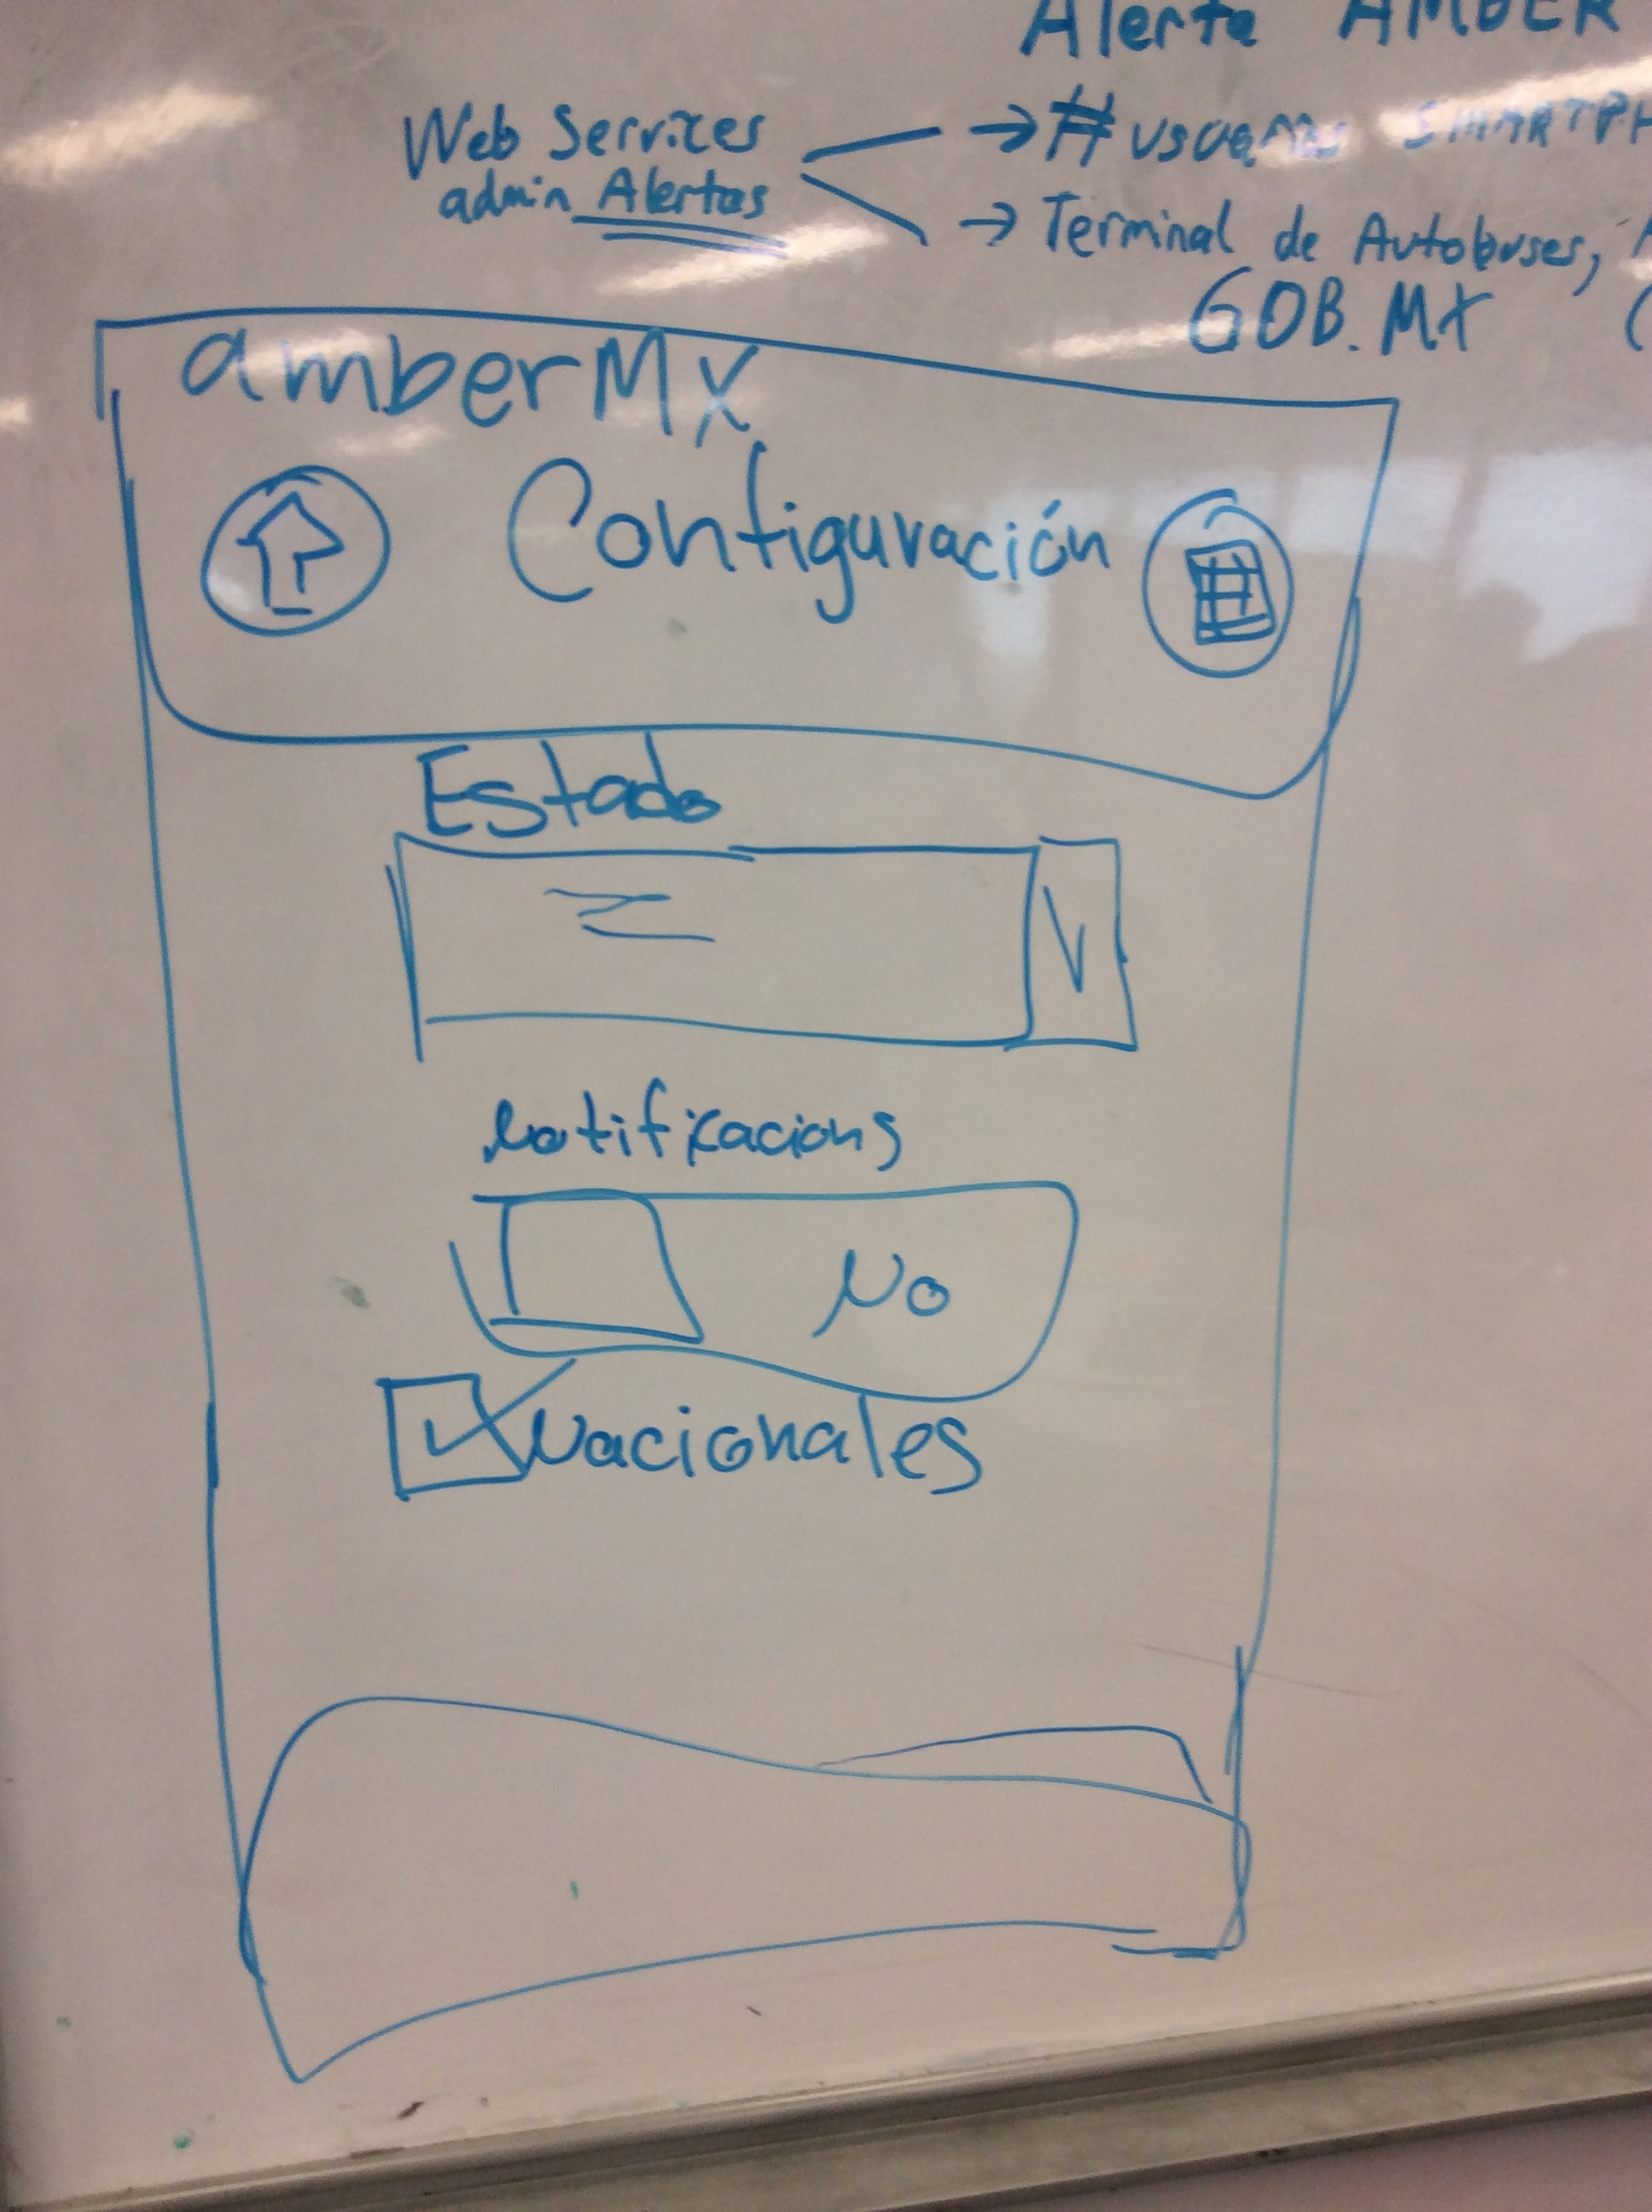 Alerta AMBER
Web Services → # usuarios SMARTPH
admin Alertas → Terminal de Autobuses,
GOB.MX
amberMX
Configuración
Estado
Notificacions
No
Nacionales